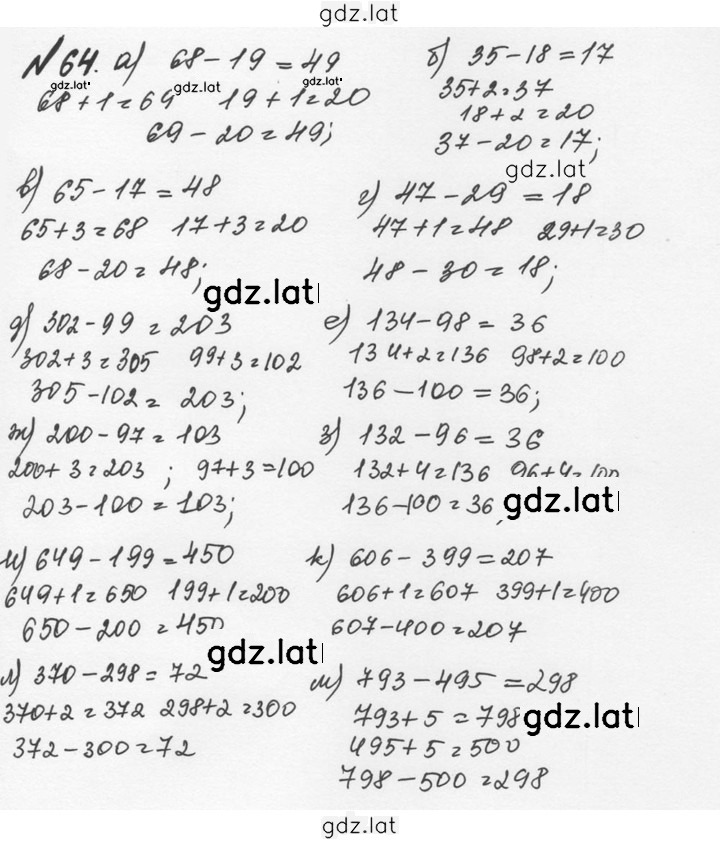 gdz.lat
№64. а) 68-19=49
68+1=69 19+1=20
69-20=49;
б) 35-18=17
35+2=37
18+2=20
37-20=17;
gdz.lat
gdz.lat
gdz.lat
gdz.lat
в) 65-17=48
65+3=68 17+3=20
68-20=48;
г) 47-29=18
47+1=48 29+1=30
48-30=18;
gdz.lat
д) 302-99=203
302+3=305 99+3=102
305-102=203;
е) 134-98=36
134+2=136 98+2=100
136-100=36;
ж) 200-97=103
200+3=203; 97+3=100
203-100=103;
з) 132-96=36
132+4=136 96+4=100
136-100=36
gdz.lat
и) 649-199=450
649+1=650 199+1=200
650-200=450
к) 606-399=207
606+1=607 399+1=400
607-400=207
gdz.lat
л) 370-298=72
370+2=372 298+2=300
372-300=72
м) 793-495=298
793+5=798
495+5=500
798-500=298
gdz.lat
gdz.lat